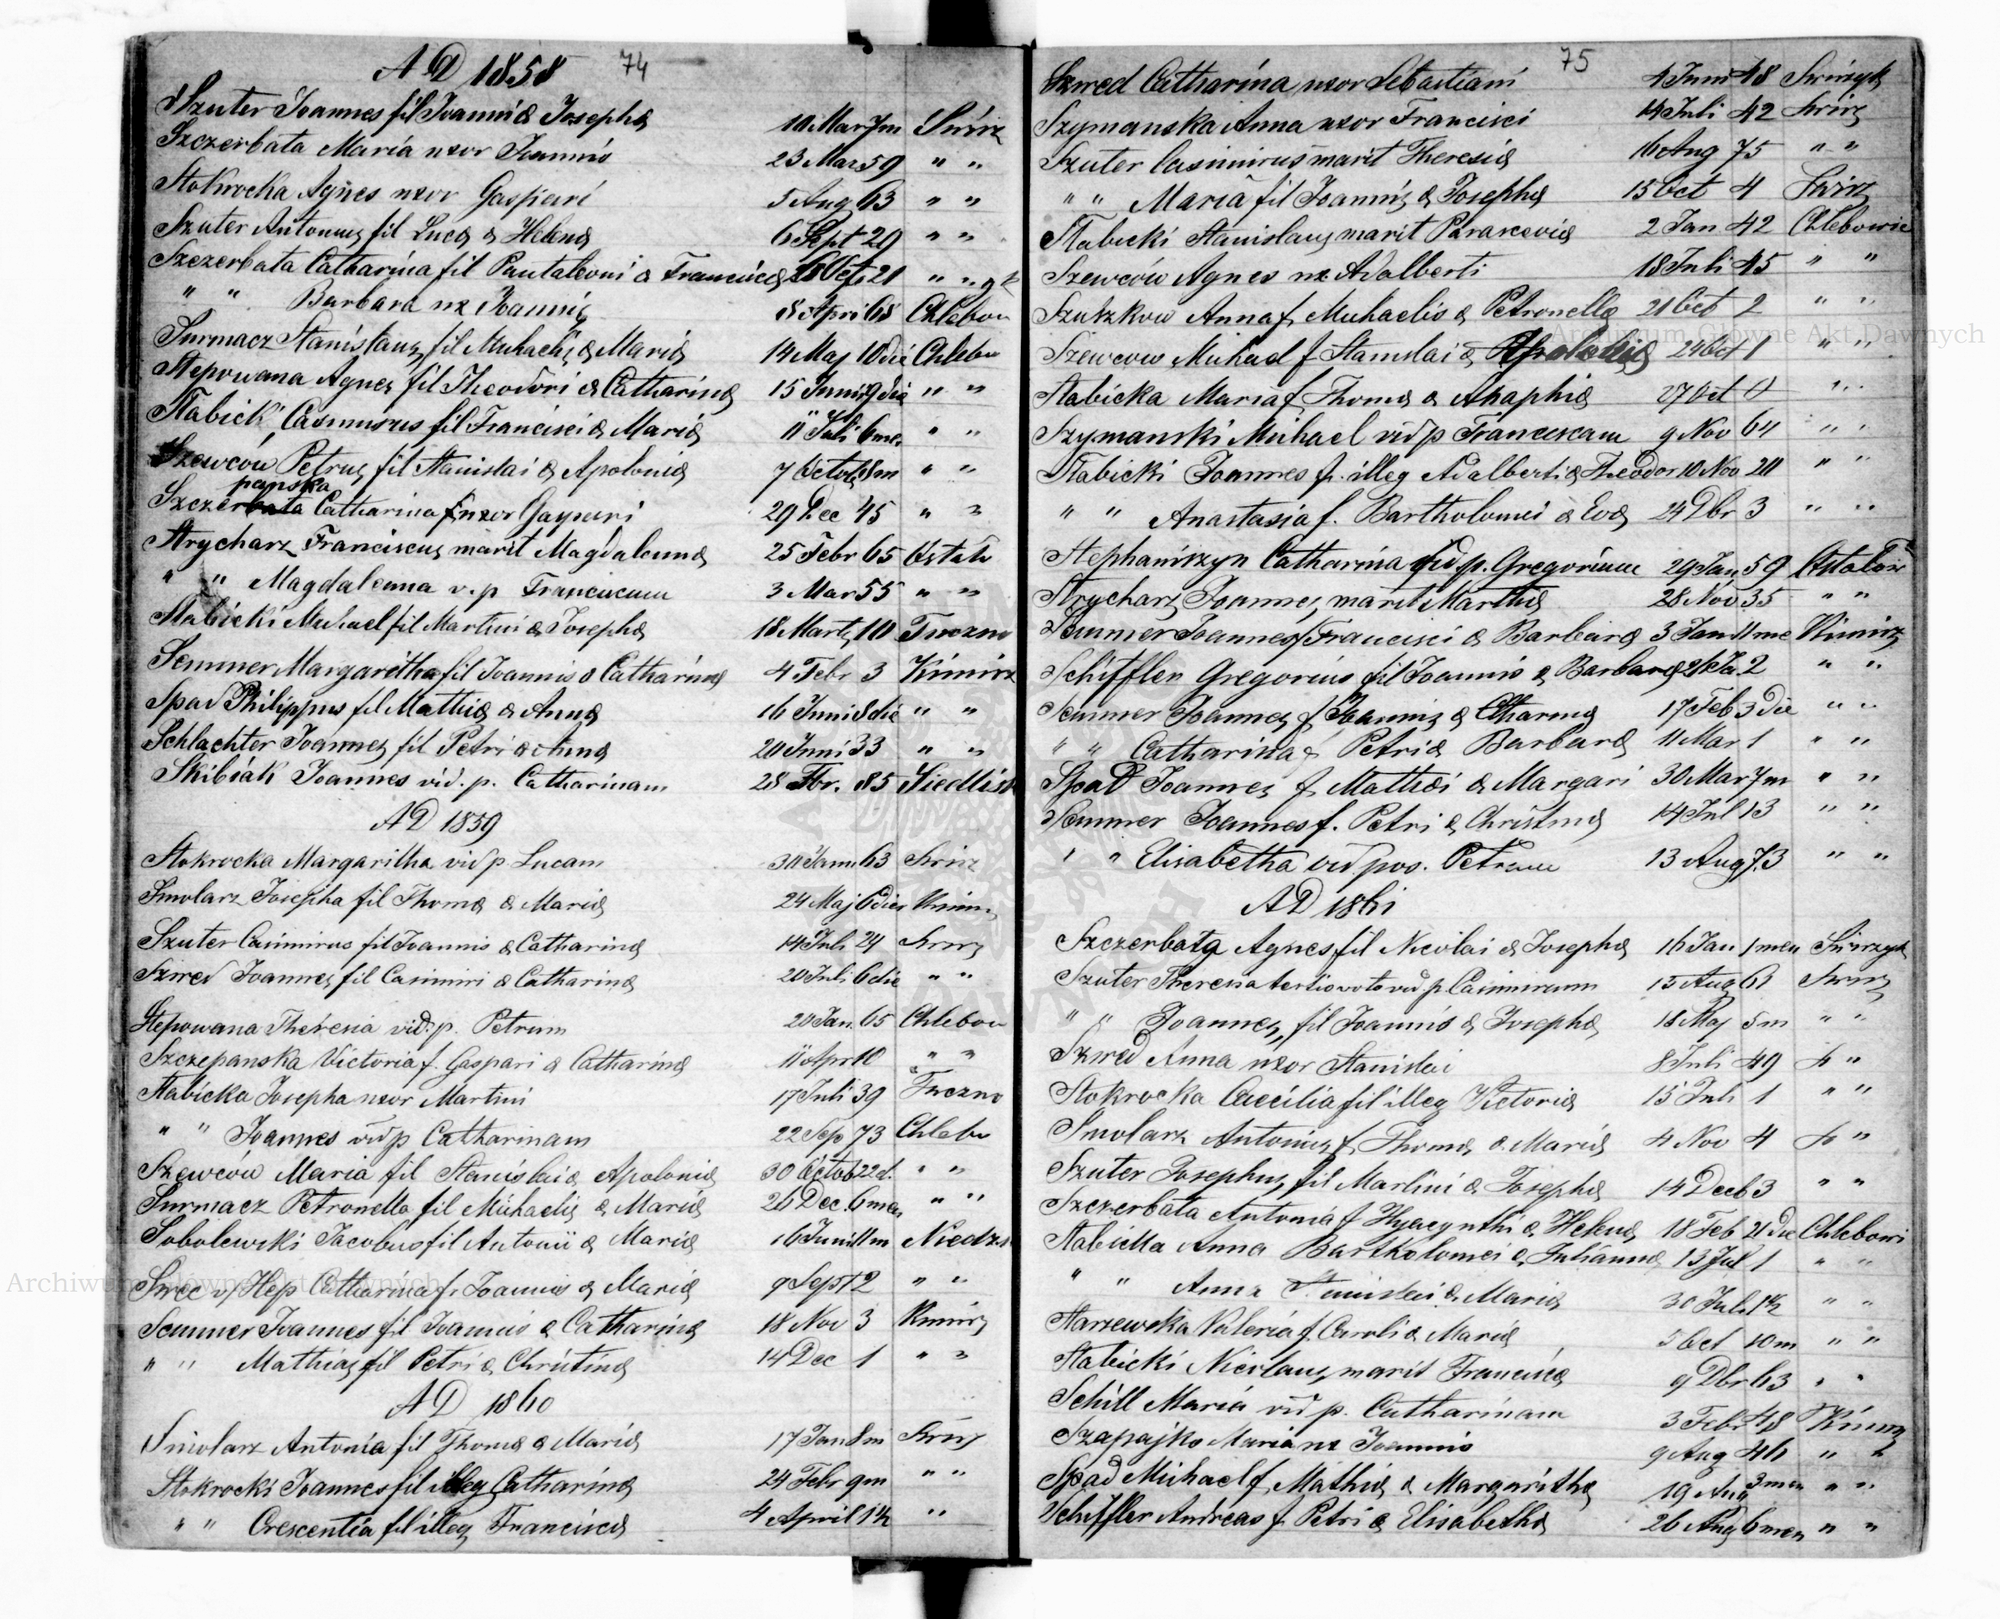 AD 1858 74
Szuter Joannes fil Joannis & Josephæ 10 Mar 7m Swirz
Szczerbata Maria uxor Joannis 23 Mar 59 " "
Stokrocka Agnes uxor Gaspari 5 Aug 63 " "
Szuter Antonius fil Lucæ & Helenæ 6 Sept 29 " "
Szczerbata Catharina fil Pantaleoni & Franciscæ Oct 21 " "
" " Barbara ux Joannis 8 Apri 68 Chlebow
Surmacz Stanislaus fil Michaelis & Mariæ 14 Maj 10 die Chlebo
Stepowana Agnes fil Theodori & Catharinæ 15 Junii 9 die " "
Stabicki Casimirus fil Francisci & Mariæ 11 Juli 6 me. " "
Szewców Petrus fil Stanislai & Apoloniæ 7 Octob 8m " "
panska
Szczerbata Catharina uxor Gaspari 29 Dec 45 " "
Strycharz Franciscus marit Magdalenna 25 Febr 65 Ostalo
" " Magdalenna v. p Franciscum 3 Mar 55 " "
Stabicki Michael fil Martini & Josephæ 18 Marti 10 Tuczno
Semmer Margaretha fil Joannis & Catharinæ 4 Febr 3 Kimirz
Spad Philippus fil Mathiæ & Annæ 16 Junii 8 die " "
Schlachter Joannes fil Petri & Annæ 20 Juni 33 " "
Skibiak Joannes vid. p. Catharinam 28 Fbr. 85 Siedlisk
AD 1859
Stokrocka Margaritha vid p Lucam 30 Janu 63 Swirz
Smolarz Josepha fil Thomæ & Mariæ 24 Maj 6 dies
Szuter Casimirus fil Joannis & Catharinæ 14 Juli 24 Swirz
Szwed Joannes fil Casimiri & Catharinæ 20 Juli 6 die " "
Stepowana Theresia vid: p. Petrum 20 Jan. 65 Chlebow
Szczepanska Victoria f. Gaspari & Catharinæ 11 Apr 10 " "
Stabicka Josepha uxor Martini 17 Juli 39 Tuczno
" " Joannes vid p Catharinam 22 Sep 73 Chlebo
Szewców Maria fil Stanislai & Apoloniæ 30 Octob 22 d. " "
Surmacz Petronella fil Michaelis & Mariæ 26 Dec. 6 men " "
Sobolewski Jacobus fil Antonii & Mariæ 16 Juni 11m Niedz
Catharina f. Joannis & Mariæ 9 Sept 2 " "
Semmer Joannes fil Joannis & Catharinæ 18 Nov 3 Kimirz
" " Mathias fil Petri & Christinæ 14 Dec 1 " "
AD 1860
Smolarz Antonia fil Thomæ & Mariæ 17 Jan 8m Swirz
Stokrocki Joannes fil illeg Catharinæ 24 Febr 9m " "
" " Crescentia fil illeg Franciscæ 4 April 1½ " "
75
Szwed Catharina uxor Sebastiani 4 Juni 48 Swirzyk
Szymanska Anna uxor Francisci 14 Juli 42 Swirz
Szuter Casimirus marit Theresiæ 16 Aug 75 " "
" " Maria fil Joannis & Josephæ 15 Oct 4 Swirz
Stabicki Stanislaus marit Parasceviæ 2 Jan 42 Chlebowic
Szewców Agnes ux Adalberti 18 Juli 45 " "
Anna f. Michaelis & Petronellæ 21 Oct 2 " "
Szewcow Michael f Stanislai & Apoloniæ 24 Oct 1 " "
Stabicka Maria f. Thomæ & Ahaphiæ 27 Oct 0 " "
Szymanski Michael vid p Franciscam 9 Nov 64 " "
Stabicki Joannes f. illeg Adalberti & Theodor 10 Nov 20 " "
" " Anastasia f. Bartholomei & Evæ 24 Dbr 3 " "
Stephaniszyn Catharina vid p. Gregorium 29 Jan 59 Ostalow
Strycharz Joannes marit Marthæ 28 Nov 35 " "
Semmer Joannes f Francisci & Barbaræ 3 Jan 11 me Kimirz
Schiffler Gregorius fil Joannis & Barbaræ 21 Ja 2 " "
Semmer Joannes f. Joannis & Catharinæ 17 Feb 3 Die " "
" " Catharina f. Petri & Barbaræ 11 Mar 1 " "
Spad Joannes f Mathæi & Margari 30 Mar 7m " "
Semmer Joannes f. Petri & Christinæ 14 Jul 13 " "
" " Elisabetha vid pos. Petrum 13 Aug 73 " "
AD 1861
Szczerbata Agnes fil Nicolai & Josephæ 16 Jan 1 men Swirzyk
Szuter Theresia tertio voto vid p Casimirum 15 Aug 61 Swirz
" " Joannes fil Joannis & Josephæ 18 Maj 5m " "
Szwed Anna uxor Stanislai 8 Juli 49 "
Stokrocka Cæcilia fil illeg Victoriæ 15 Juli 1 " "
Smolarz Antonius f. Thomæ & Mariæ 4 Nov 4 "
Szuter Josephus fil Martini & Josephæ 14 Decb 3 " "
Szczerbata Antonia f Hyacynthi & Helenæ 18 Feb 21 Die Chlebowi
Stabicka Anna Bartholomei & Juliannæ 13 Jul 1 " "
" " Anna Stanislai & Mariæ 30 Jul 1½ " "
Starzewska Valeria f Caroli & Mariæ 5 Oct 10m " "
Stabicki Nicolaus marit Franciscæ 9 Dbr 63 " "
Schill Maria vid p. Catharinam 3 Febr 48 Kimirz
Szapajko Maria ux Joannis 9 Aug 46 " "
Spad Michael f. Mathiæ & Margarithæ 19 Aug 3 men " "
Schiffler Andreas f Petri & Elisabethæ 26 Aug 6 men " "
Archiwum Główne Akt Dawnych
Archiwum Główne Akt Dawnych